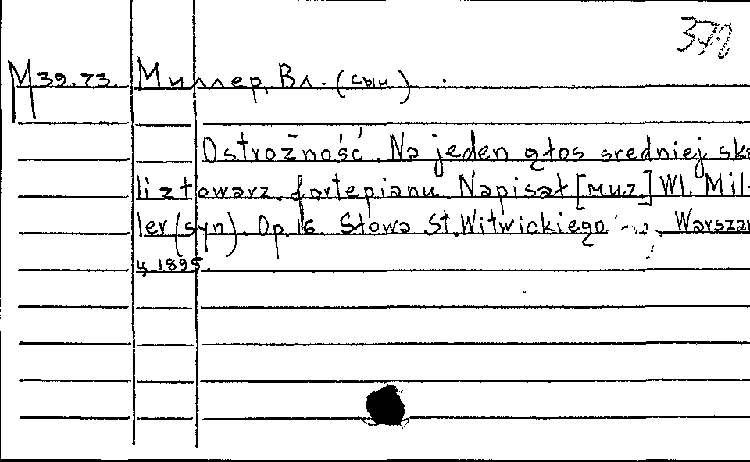 379
М 39.73. Миллер, Вл. (сын)
Ostrożność. Na jeden głos średniej ska
li z towarz. fortepianu. Napisał [муз.] Wł. Mil-
ler (syn). Op. 16. Słowa St. Witwickiego
ц. 1895.